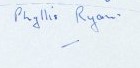 Phyllis Ryan